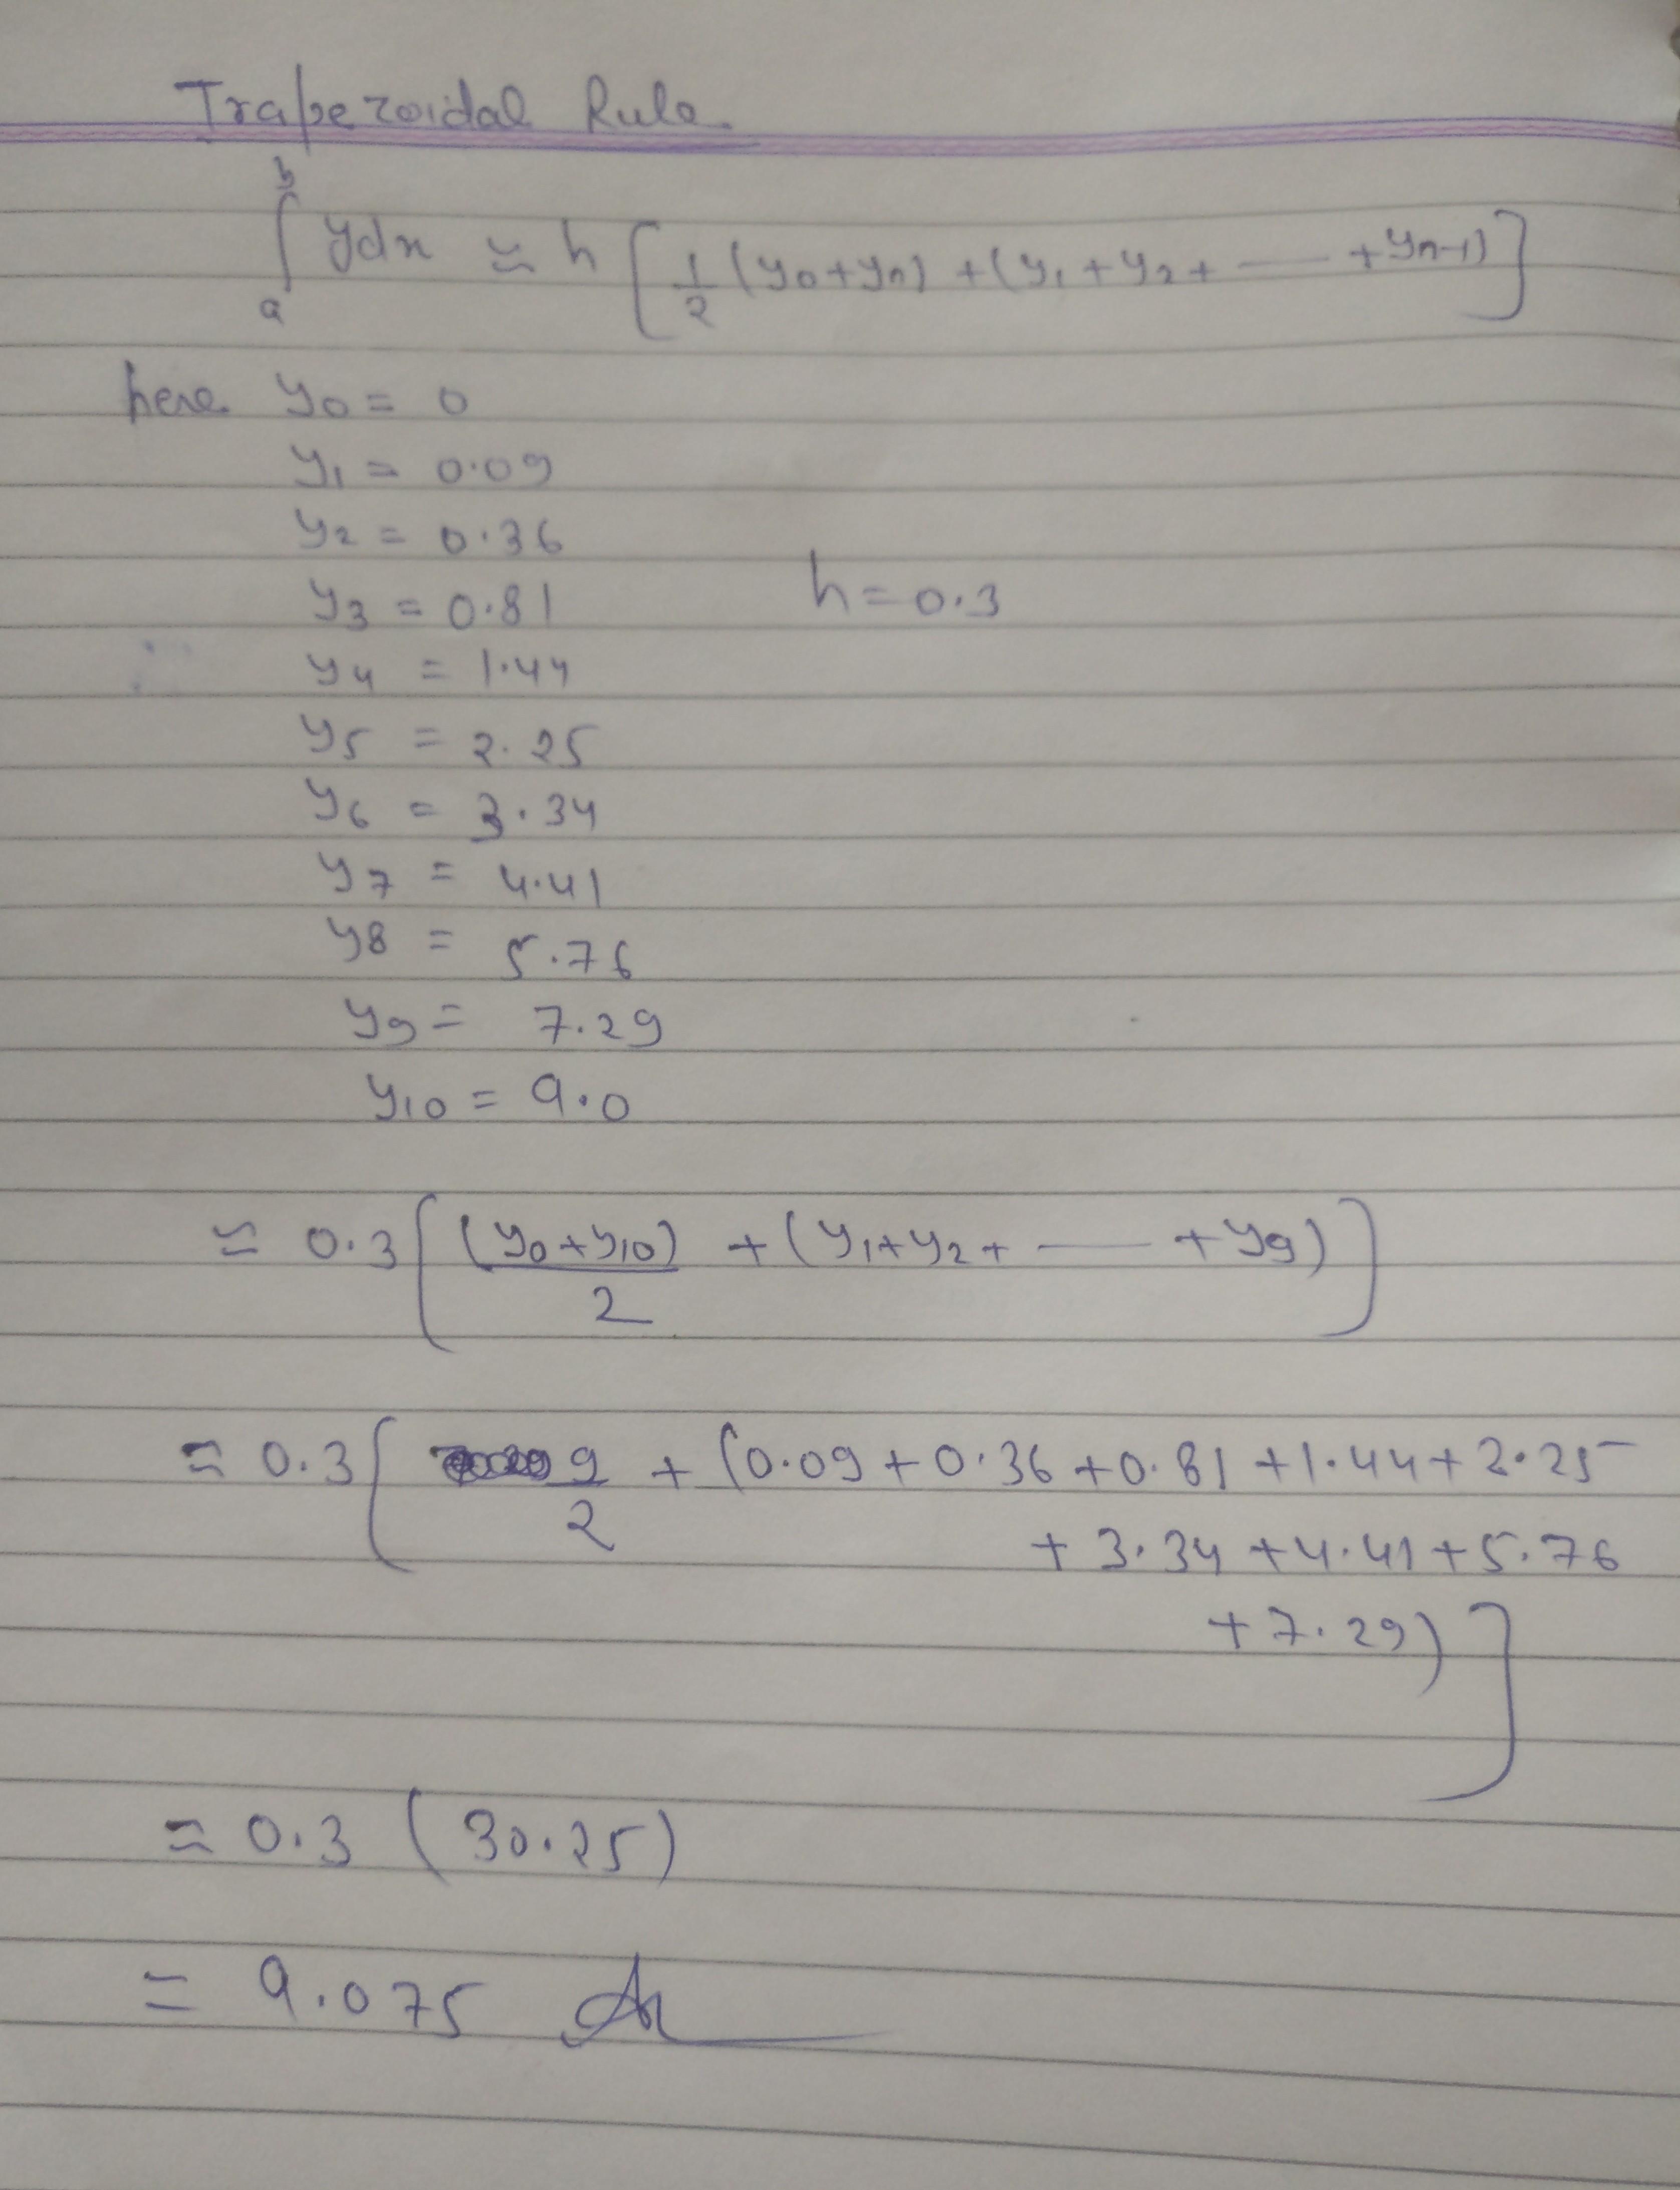 Trapezoidal Rule
∫ₐᵇ ydx ≃ h [ 1/2 (y₀+yₙ) + (y₁+y₂+ —— +yₙ₋₁) ]
here y₀ = 0
y₁ = 0.09
y₂ = 0.36
y₃ = 0.81 h = 0.3
y₄ = 1.44
y₅ = 2.25
y₆ = 3.34
y₇ = 4.41
y₈ = 5.76
y₉ = 7.29
y₁₀ = 9.0
≃ 0.3 [ (y₀+y₁₀)/2 + (y₁+y₂+ —— +y₉) ]
≃ 0.3 [ 9/2 + (0.09+0.36+0.81+1.44+2.25
+3.34+4.41+5.76
+7.29) ]
≃ 0.3 (30.25)
= 9.075